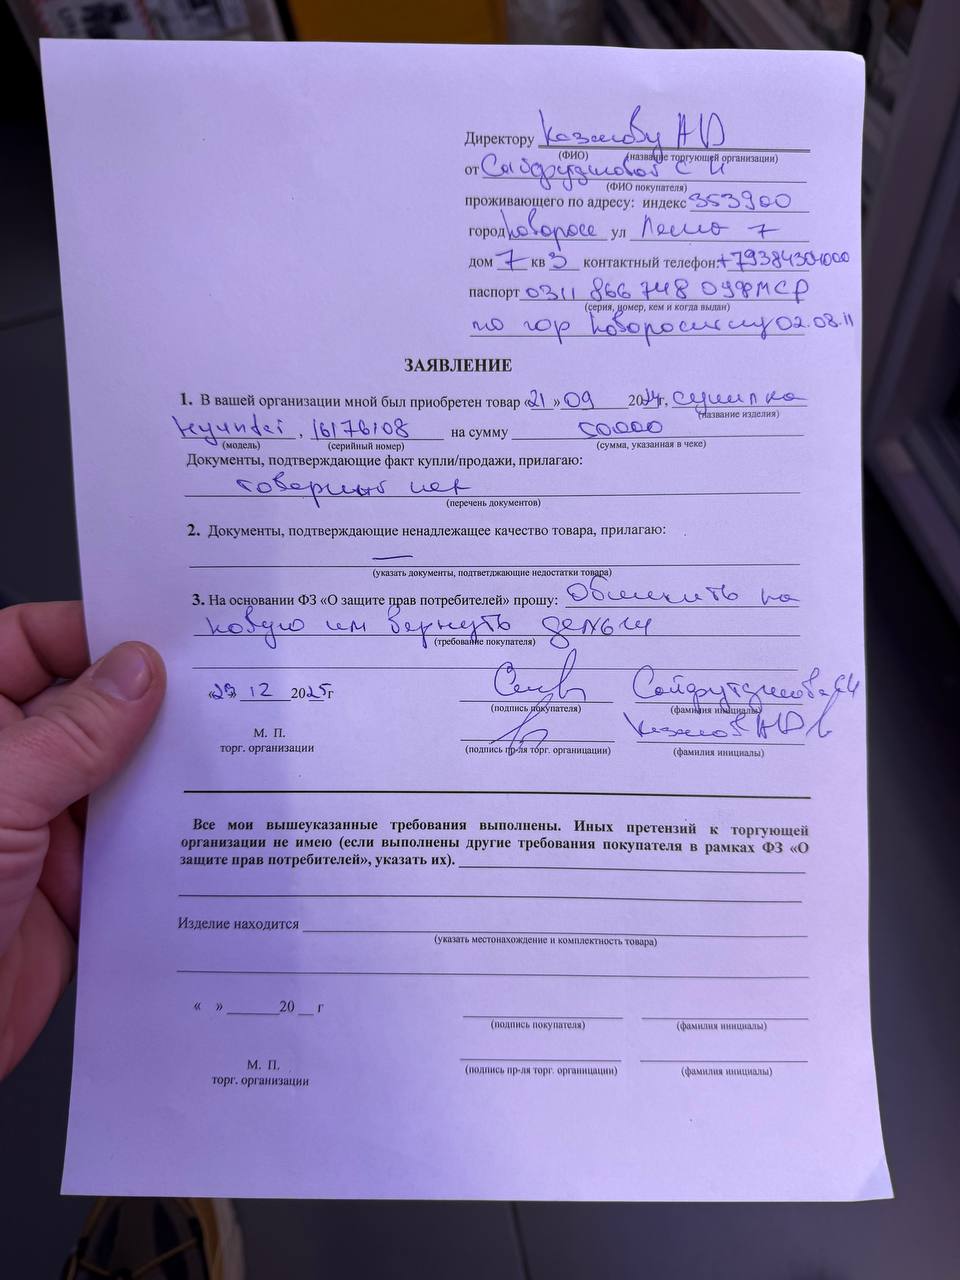 Директору Казакову АЮ
(ФИО) (название торгующей организации)
от Сайфутдиновой С И
(ФИО покупателя)
проживающего по адресу: индекс 353900
город Новоросс ул 7
дом 7 кв 3 контактный телефон:
паспорт 0311 866 748 ОУФМСР
(серия, номер, кем и когда выдан)
по гор Новороссийску 02.08.11
ЗАЯВЛЕНИЕ
1. В вашей организации мной был приобретен товар «21» 09 2024г, сушилка
(название изделия)
Hyundai , 16176108 на сумму 50000
(модель) (серийный номер) (сумма, указанная в чеке)
Документы, подтверждающие факт купли/продажи, прилагаю:
товарный чек
(перечень документов)
2. Документы, подтверждающие ненадлежащее качество товара, прилагаю:
—
(указать документы, подтветджающие недостатки товара)
3. На основании ФЗ «О защите прав потребителей» прошу: Обменить на
новую или вернуть деньги
(требование покупателя)
«29» 12 2025г
(подпись покупателя) (фамилия инициалы)
М. П.
торг. организации (подпись пр-ля торг. органицации) (фамилия инициалы)
Все мои вышеуказанные требования выполнены. Иных претензий к торгующей
организации не имею (если выполнены другие требования покупателя в рамках ФЗ «О
защите прав потребителей», указать их).
Изделие находится
(указать местонахождение и комплектность товара)
« » 20 г
(подпись покупателя) (фамилия инициалы)
М. П.
торг. организации (подпись пр-ля торг. органицации) (фамилия инициалы)